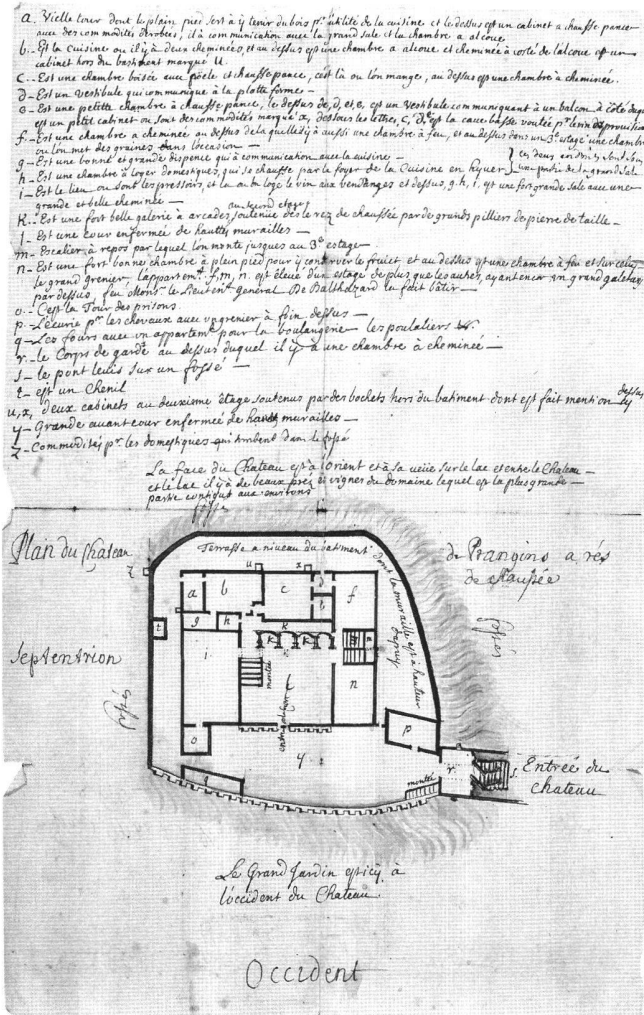 a. Vielle tour dont le plain pied sert à y tenir du bois pr. l'utilité de la cuisine et le dessus est un cabinet a chauffe pance
avec des commodités derobées, il à communication avec la grand sale et la chambre a alcove
b. Est la Cuisine ou il y à deux cheminées, et au dessus est une chambre a alcove et cheminée à coste de lalcove est un
cabinet hors du bastiment marqué U.
C. Est une chambre boisée avec poële et chauffe pance, c'est là ou lón mange, au dessus est une chambre à cheminée.
d. Est un vestibule qui communique à la platte forme
e. Est une petitte chambre à chauffe pance, le dessus de, d, et e, est un vestibule communiquant à un balcon, à côté
est un petit cabinet ou sont des commodités marqué x, dessous les lettres, c, d, e, est la cave basse voutée pr. le vin de
f. Est une chambre a cheminée au dessus de la quelle il y à aussi une chambre à feu, et au dessus dans un 3e. estage une chambre
ou lón met des graines dans l'occasion
g. Est une bonne et grande dispence qui à communication avec la cuisine
h. Est une chambre à loger domestiques, qui se chauffe par le foyer de la Cuisine en hyver
ces deux endroits sont sous
une partie de la grand sale
i. Est le lieu ou sont les pressoirs, et là ou on loge le vin aux vendanges et dessus, g. h, i, est une fort grande sale avec une
grande et belle cheminée
au second estage
K. Est une fort belle galerie à arcades, soutenüe des le rez de chaussée par de grands pilliers de pierre de taille
l. Est une cour enfermée de hauttes murailles
m. Escalier, à repos par lequel lón monte jusques au 3e. estage
n. Est une fort bonne chambre à plein pied pour y conserver le fruict, et au dessus est une chambre à feu et sur
le grand grenier. lappartemt. f, m, n. est élevé d'un estage de plus que les autres, ayant encor un grand galetas
par dessus, feu Monsr. le Lieutent. general De Balthazard la fait bâtir
o. C'est la Tour des prisons
p. L'écurie pr. les chevaux avec un grenier à foin dessus
q. Les fours avec un appartemt. pour la boulangerie les poulaliers
r. Le Corps de garde au dessus duquel il y a une chambre à cheminée
s. le pont levis sur un fossé
t. est un Chenil
u, x, deux cabinets au deuxieme étage soutenus par des bochets hors du batiment dont est fait mention cy dessus
y. Grande avant cour enfermée de murailles
z. Commodités pr. les domestiques qui tombent dans le fossé
La face du Chateau est à lorient et à sa veüe sur le lac et entre le Chateau
et le lac il y à de beaux prés et vignes du domaine lequel est la plus grande
partie contigut aux environs
fossés
Plan du Chateau
de Prangins a rés
de chaussée
Terrasse a niveau du batiment dont la muraille est à hauteur d'apuy
z
u
x
a
b
c
d
e
f
g
h
t
k
k
k
k
i
m
n
montée
l
entrée
Septentrion
fossés
fossés
o
p
q
y
montée
r
s
Entrée du
chateau
Le Grand Jardin est icy à
l'occident du Chateau
Occident